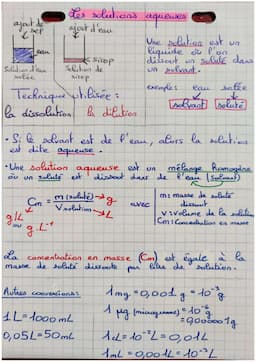 Les solutions aqueuses
ajout de sel
ajout d'eau
eau
sirop
Solution d'eau salée
Solution de sirop
Technique utilisée :
la dissolution
la dilution
Une solution est un
liquide où l'on
dissout un soluté dans
un solvant.
exemple : eau salée
solvant soluté
• Si le solvant est de l'eau, alors la solution
est dite aqueuse.
• Une solution aqueuse est un mélange homogène
où un soluté est dissout dans de l'eau (solvant)
Cm = m (soluté) → g
V solution → L
g/L
ou g.L⁻¹
avec
m : masse de soluté
dissout
V : Volume de la solution
Cm : Concentration en masse
La concentration en masse (Cm) est égale à la
masse de soluté dissoute par litre de solution.
Autres conversions :
1 L = 1000 mL
0,05 L = 50 mL
1 mg = 0,001 g = 10⁻³ g
1 µg (microgramme) = 10⁻⁶ g
= 0,000001 g
1 cL = 10⁻² L = 0,01 L
1 mL = 0,001 L = 10⁻³ L